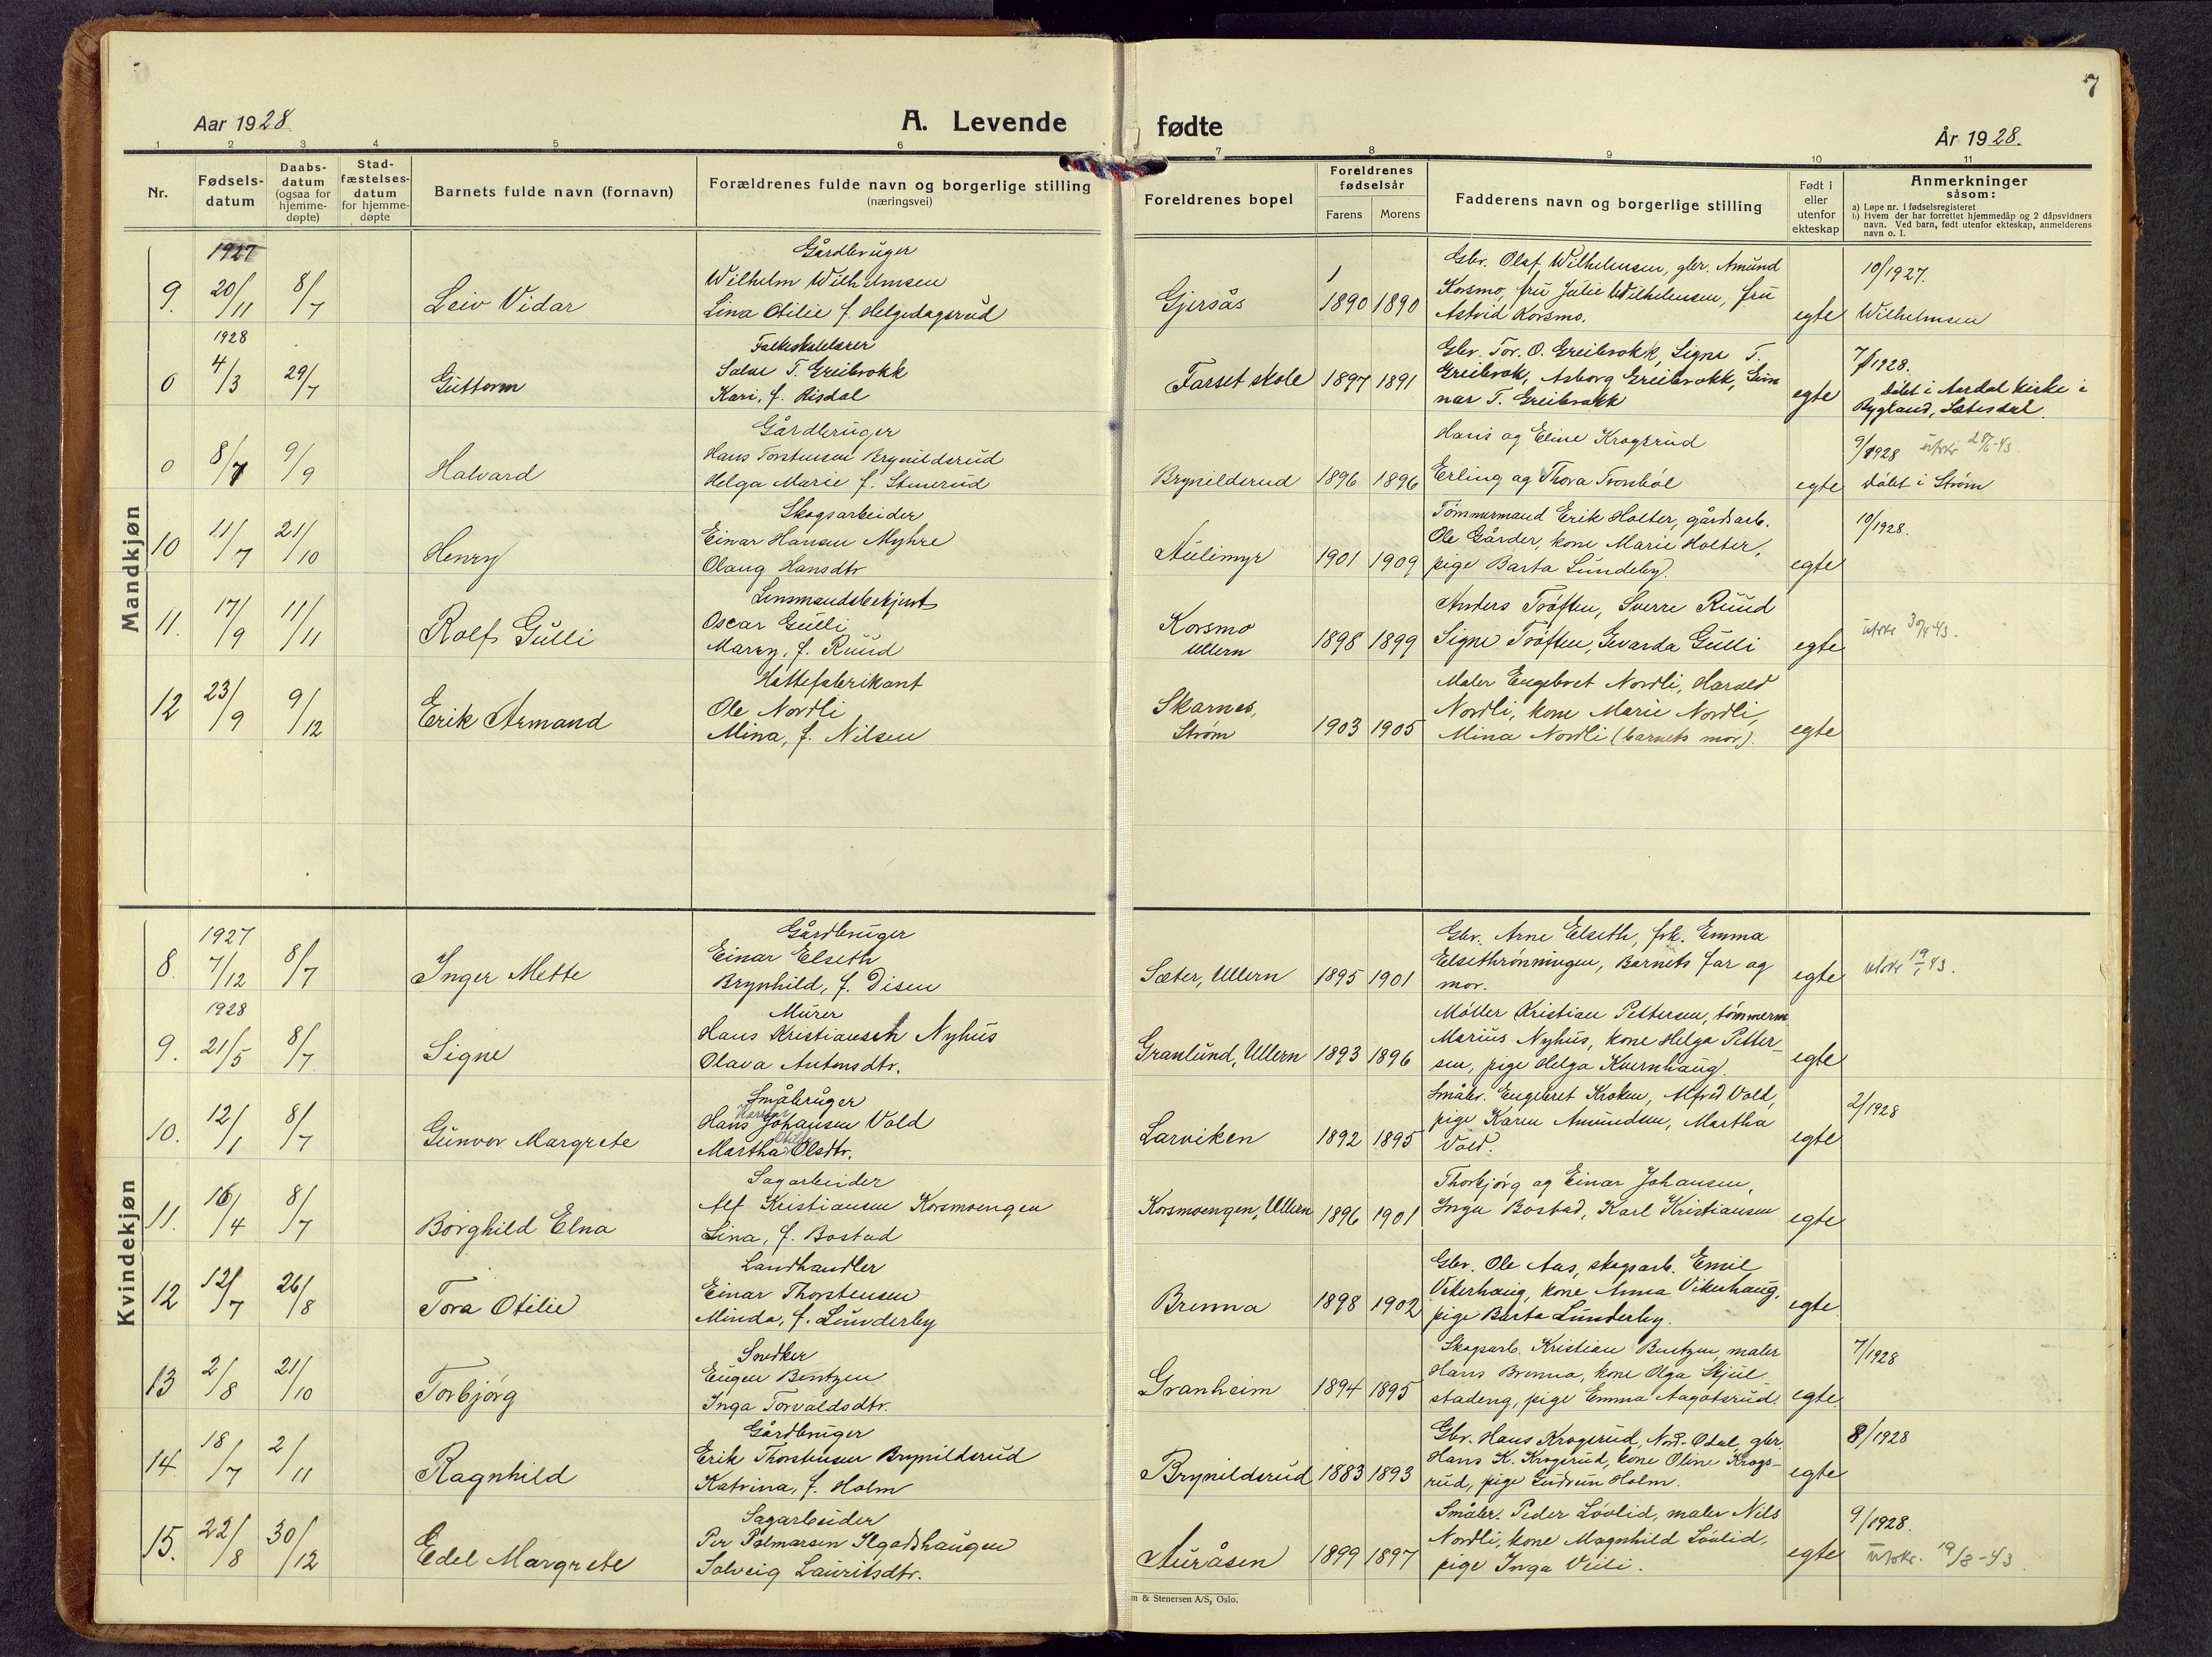 7
Aar 1928
A. Levende
fødte
År 1928.
1 2 3 4 5 6 7 8 9 10 11
Nr.
Fødsels-
datum
Daabs-
datum
(ogsaa for
hjemme-
døpte)
Stad-
fæstelses-
datum
for hjemme-
døpte
Barnets fulde navn (fornavn)
Forældrenes fulde navn og borgerlige stilling
(næringsvei)
Foreldrenes bopel
Foreldrenes
fødselsår
Farens
Morens
Fadderens navn og borgerlige stilling
Født i
eller
utenfor
ekteskap
Anmerkninger
såsom:
a) Løpe nr. i fødselsregisteret
b) Hvem der har forrettet hjemmedåp og 2 dåpsvidners
navn. Ved barn, født utenfor ekteskap, anmelderens
navn o. l.
Mandkjøn
1927
9. 20/11 8/7 Leiv Vidar
Gårdbruger
Wilhelm Wilhelmsen
Lina Otilie f. Helgedagsrud
Gjersås 1890 1890
Gbr. Olaf Wilhelmsen, gbr. Amund
Korsmo, fru Julie Wilhelmsen, fru
Astvid Korsmo.
egte
10/1927.
Wilhelmsen
1928
0 4/3 29/7 Guttorm
Folkeskolelærer
Salve T. Greibrokk
Kari, f. Risdal
Farset skole 1897 1891
Gbr. Tor. O. Greibrokk, Signe T.
Greibrok, Asborg Greibrokk, Gun
nar T. Greibrokk
egte
7/1928.
Døbt i Aardal kirke i
Bygland, Sætesdal.
0 8/7 9/9 Halvard
Gårdbruger
Hans Torstensen Brynildsrud
Helga Marie f. Stuerud
Brynildsrud 1896 1896
Hans og Eline Krogsrud
Erling og Thora Tronbøl
egte
9/1928
Døbt i Strøm
10 11/7 21/10 Henry
Skogsarbeider
Einar Hansen Myhre
Olaug Hansdtr
Aulimyr 1901 1909
Tømmermand Erik Holter, gårdsarb.
Ole Gårder, kone Marie Holter,
pige Barta Lundeby.
egte
10/1928.
11. 17/9 11/11 Rolf Gulli
Lensmandsbetjent
Oscar Gulli
Marry, f. Ruud
Korsmo
Ullern
1898 1899
Anders Trøften, Sverre Ruud
Signe Trøften, Gevarda Gulli
egte
12 23/9 9/12 Erik Armand
Hattefabrikant
Ole Nordli
Mina, f. Nilsen
Skarnes,
Strøm
1903 1905
Maler Engebret Nordli, Harald
Nordli, kone Marie Nordli,
Mina Nordli (barnets mor).
egte
Kvindekjøn
1927
8. 7/12 8/7 Inger Mette
Gårdbruger
Einar Elseth
Brynhild, f. Disen
Sæter, Ullern 1895 1901
Gbr. Arne Elseth, frk. Emma
Elsethrønningen, Barnets far og
mor.
egte
1928
9. 21/5 8/7 Signe
Murer
Hans Kristiansen Nyhus
Olava Antonsdtr.
Granlund, Ullern 1893 1896
Møller Kristian Pettersen, tømmerm
Marius Nyhus, kone Helga Petter-
sen, pige Helga Kvernhaug.
egte
10. 12/1 8/7 Gunvor Margrete
Småbruger
Hans Johansen Vold
Martha Olsdtr.
Larviken 1892 1895
Småbr. Engebret Kroken, Alfred Vold,
pige Karen Amundsen, Martha
Vold.
egte
2/1928
11. 16/4 8/7 Borghild Elna
Sagarbeider
Alf Kristiansen Korsmoengen
Lina, f. Bostad
Korsmoengen, Ullern 1896 1901
Thorbjørg og Einar Johansen,
Inga Bostad, Karl Kristiansen
egte
12 12/7 26/8 Tora Otilie
Landhandler
Einar Thorstensen
Minda, f. Lunderby
Brenna 1898 1902
Gbr. Ole Aas, skogsarb. Emil
Vikerhaug, kone Anna Vikerhaug,
pige Barta Lunderby.
egte
13 2/8 21/10 Torbjørg
Snedker
Eugen Bentzen
Inga Torvaldsdtr.
Granheim 1894 1895
Skogsarb. Kristian Bentzen, maler
Hans Brenna, kone Olga Skjul
stadeng, pige Emma Aagotsrud.
egte.
7/1928
14. 18/7 2/11 Ragnhild
Gårdbruger
Erik Thorstensen Brynildsrud
Katrina, f. Holm
Brynildsrud 1883 1893
Gbr. Hans Krogsrud, Nord-Odal, gbr.
Hans K. Krogsrud, kone Oline Krogs-
rud, pige Gudrun Holm.
egte
8/1928
15. 22/8 30/12 Edel Margrete
Sagarbeider
Per Palmarsen
Solveig Lauritsdtr.
Auråsen 1899 1897
Småbr. Peder Løvlid, maler Nils
Nordli, kone Magnhild Løvlid,
pige Inga
egte
9/1928.
utskr. 19/8-43
& Stenersen A/S, Oslo.